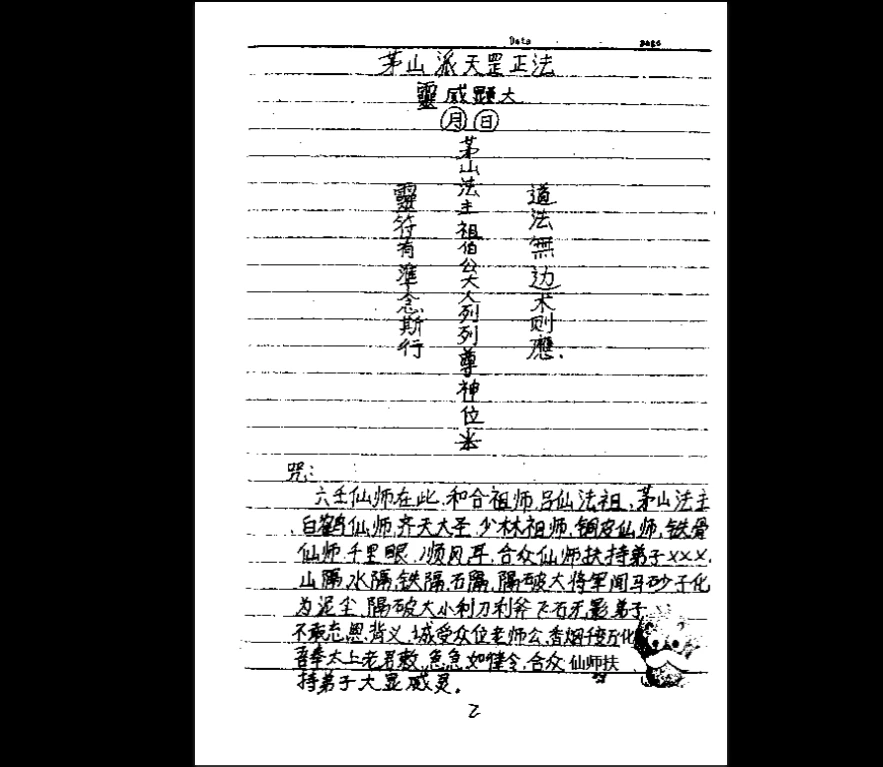 Date page
茅山派天罡正法
靈威顯大
月 日
道法無边术则應.
茅山法主祖伯公大人列列尊神位
靈符有準念斯行
咒:
六壬仙师在此,和合祖师吕仙法祖,茅山法主
白鹤仙师,齐天大圣,少林祖师,铜皮仙师,铁骨
仙师千里眼,顺风耳,合众仙师扶持弟子×××,
山隔,水隔,铁隔,石隔,隔破大将军闻马砂子化
为泥尘,隔破大小利刀利斧飞石无影弟子
不敢忘恩背义,诚受众位老师公,香烟传万化
吾奉太上老君敕,急急如律令,合众仙师扶
持弟子大显威灵。
2